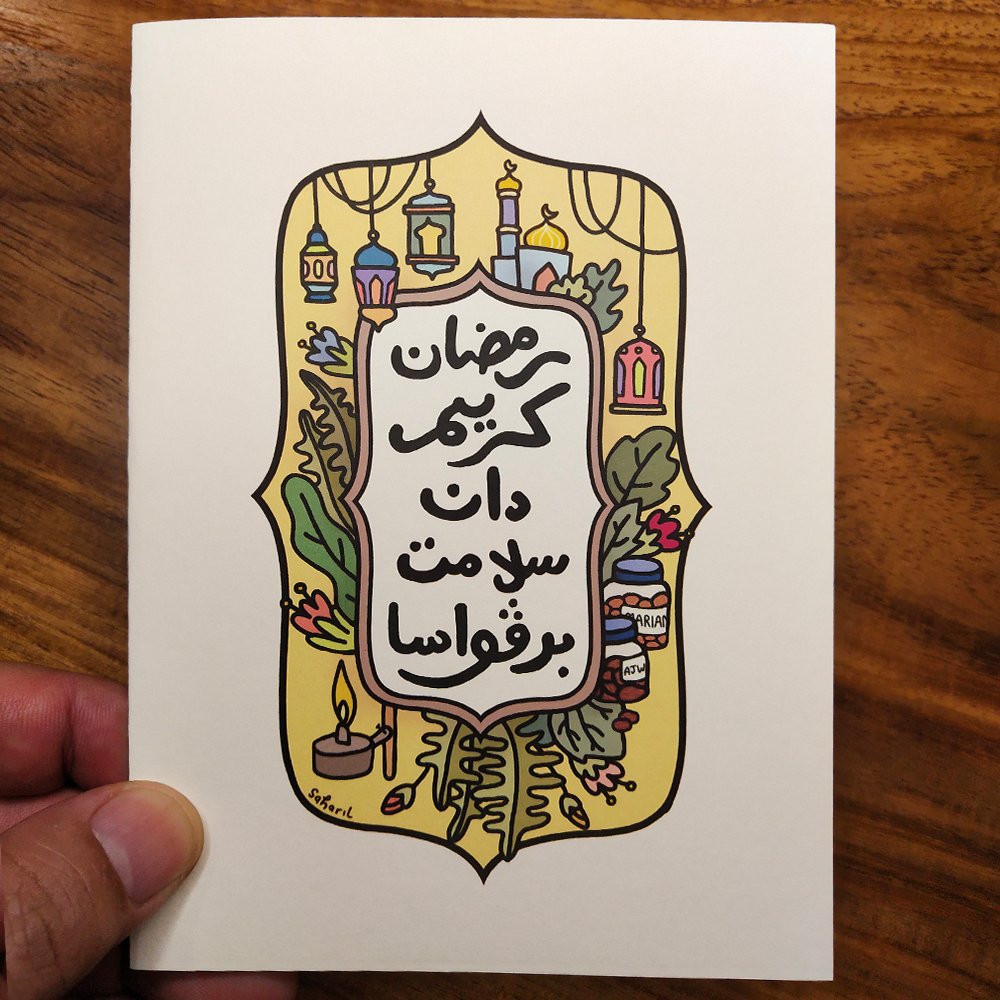 رمضان
كريم
دان
سلامت
برڤواسا
MARIAM
AJW
Saharil